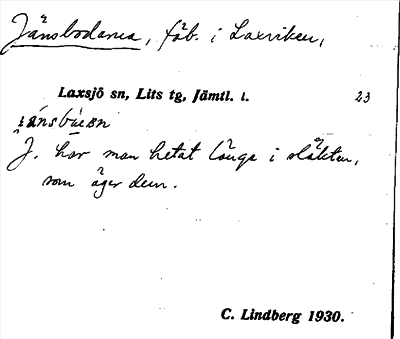 Jänsbodarna, fäb. i Laxviken,
Laxsjö sn, Lits tg, Jämtl. l. 23
J. har man hetat länge i släkten,
som äger dem.
C. Lindberg 1930.